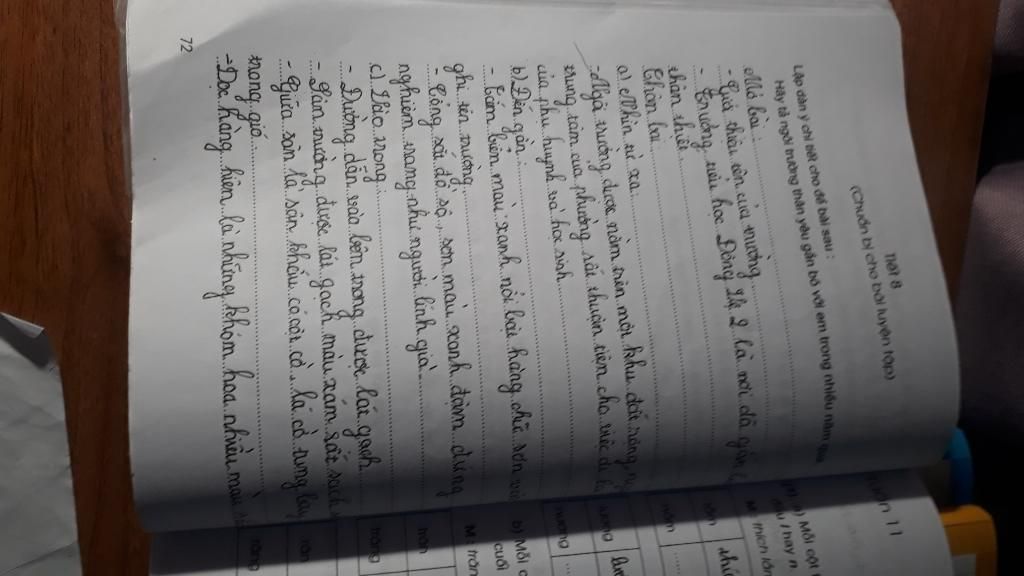 Tiết 8
(Chuẩn bị cho bài luyện tập)
Lập dàn ý chi tiết cho đề bài sau :
Hãy tả ngôi trường thân yêu gắn bó với em trong nhiều năm qua
Mở bài:
- Giới thiệu tên của trường
- Trường tiểu học Đông Mỹ 2 là nơi đã gắn
thân thiết.
Thân bài
a) Nhìn từ xa
- Ngôi trường được nằm trên một khu đất rộng
trung tâm của phường rất thuận tiện cho việc đi
của phụ huynh và học sinh
b) Đến gần:
- Tấm biển màu xanh nổi bật hàng chữ sơn
ghi tên trường
- Cổng sắt đồ sộ, sơn màu xanh đậm đứng
nghiêm trang như người lính gác
c) Vào trong
- Đường dẫn vào bên trong được lát gạch
- Sân trường được lát gạch màu xám sạch
- Giữa sân là sân khấu có cột cờ, lá cờ tung bay
trong gió
- Dọc hàng hiên là những khóm hoa nhiều màu
72
uần 11
a) Mỗi cột
M: thích lắm
năm
lương
nương
...
b) Mỗi c
cuối
M: trăn
trăn
trăng
răn
răng